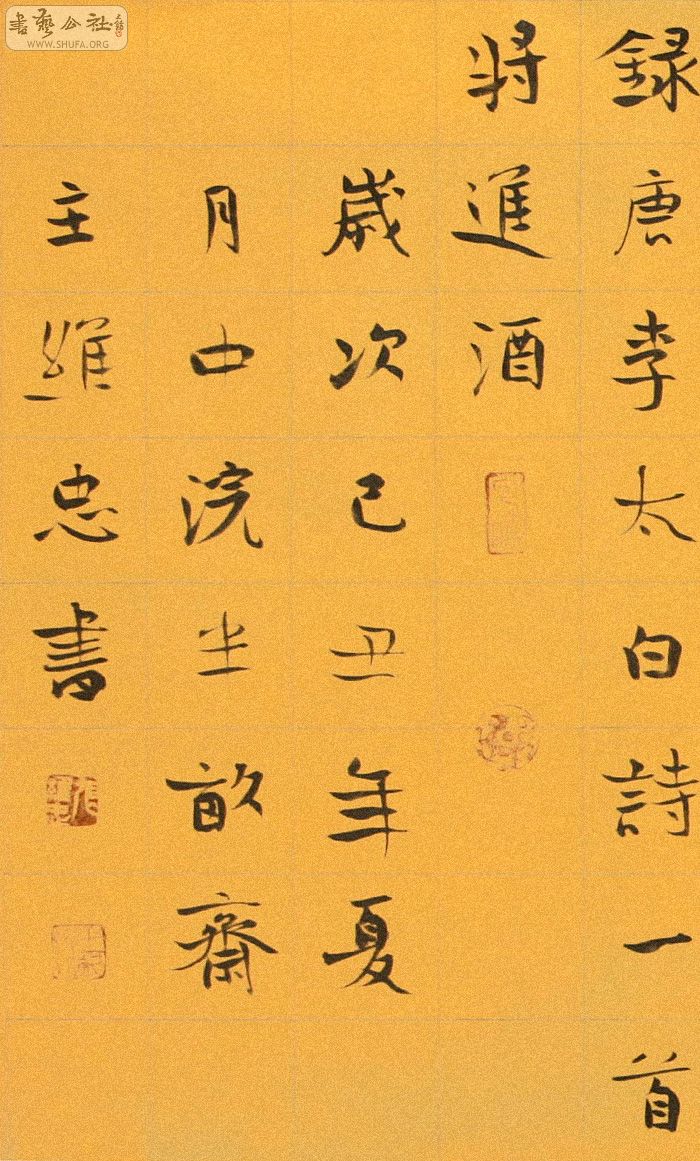 錄唐李太白詩一首
將進酒
歲次己丑年夏
月中浣半畝齋
主維忠書
書藝公社
WWW.SHUFA.ORG